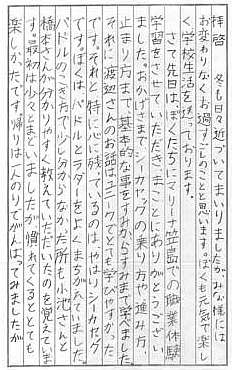 拝啓　冬も日々近づいてまいりましたが、みな様には
お変わりなくお過ごしのことと思います。ぼくも元気で楽し
く学校生活を送っております。
さて先日は、ぼくたちにマリーナ笠島での職業体験
学習をさせていただき、まことにありがとうござい
ました。おかげさまでシーカヤックの乗り方や進み方、
止まり方まで、基本的な事をすみからすみまで学べました。
それに渡辺さんのお話はユニークでとても学びやすかった
です。それと特に心に残っているのは、やはりシーカヤック
です。ぼくはパドルとラダーをよくまちがえていました。
パドルのこぎ方で少し分からなかった所も小池さんと
橋本さんが分かりやすく教えていただいたのを覚えていま
す。最初は少々とまどいましたが慣れてくるととても
楽しかったです。帰りは一人のりでがんばってみましたが